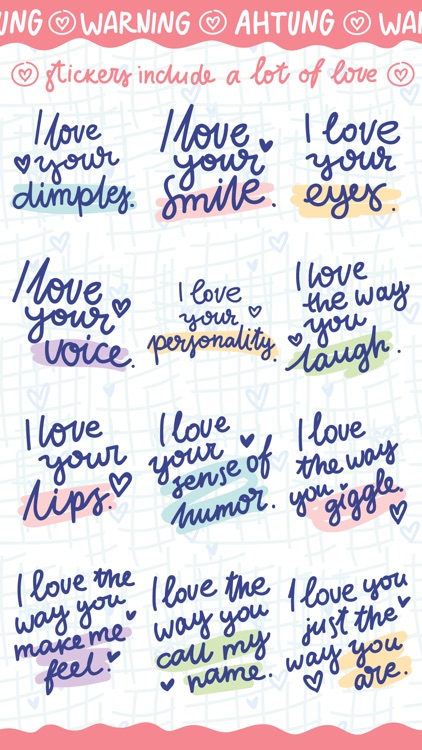 UNG WARNING AHTUNG WA
stickers include a lot of love
I love
your
dimples.
I love
your
smile.
I love
your
eyes.
I love
your
voice.
I love
your
personality.
I love
the way
you
laugh.
I love
your
lips.
I love
your
sense of
humor.
I love
the way
you giggle.
I love the
way you
make me
feel.
I love the
way you
call my
name.
I love you
just the
way you
are.